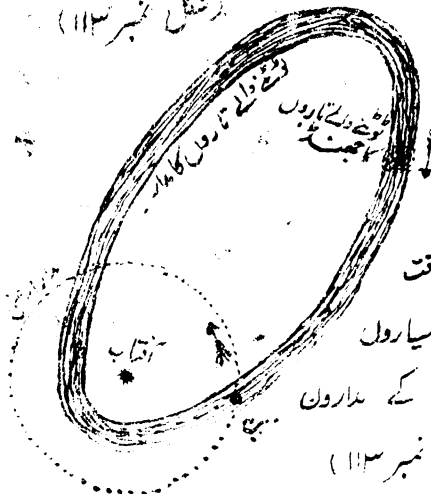 (شکل نمبر ۱۱۳)
ٹوٹنے والے تاروں کا مدار
ٹوٹنے والے تاروں
کا جھنڈ
آفتاب
سیارول
کے مدارون
نمبر ۱۱۳)